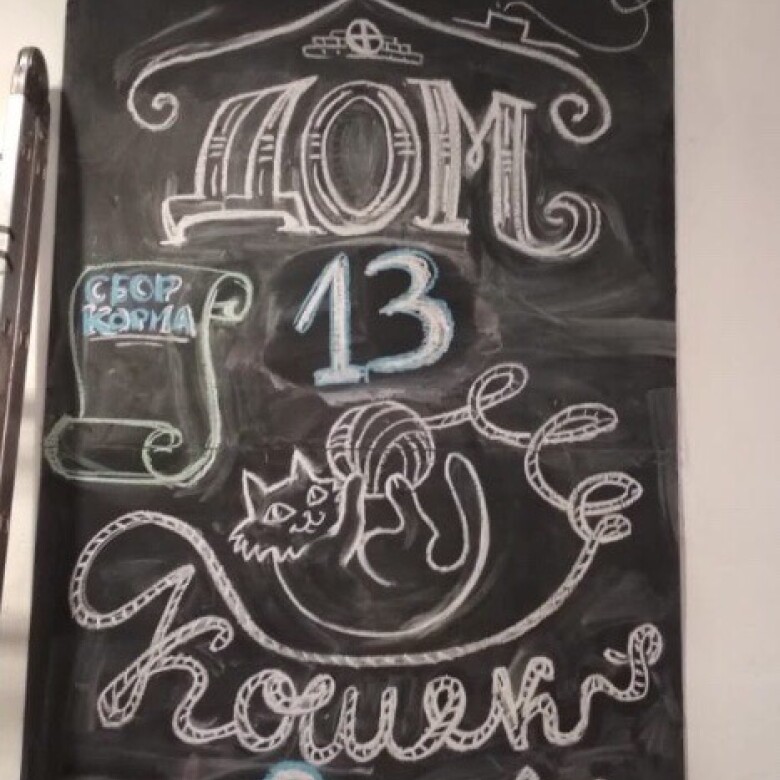 ДОМ
13
СБОР
КОРМА
Кошек